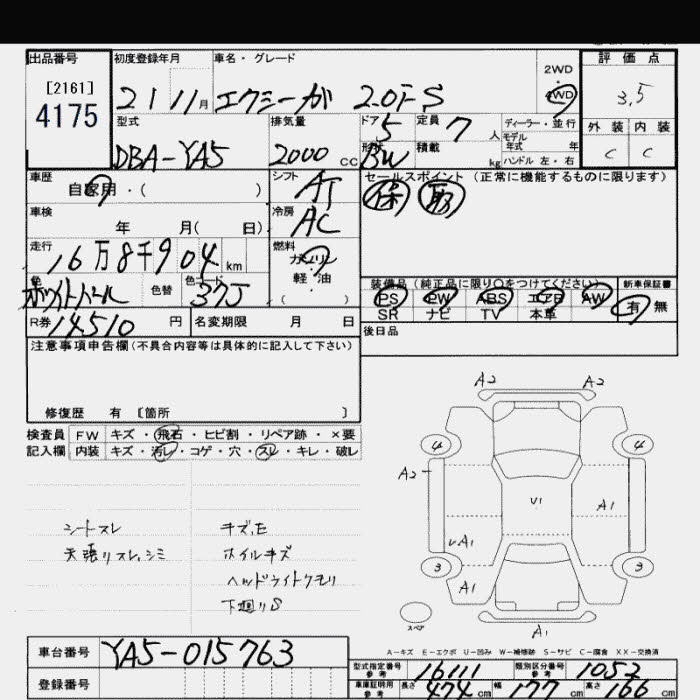 出品番号 初度登録年月 車名・グレード 評価点
[2161]
4175
21 11月 エクシーガ 2.0i-S 2WD・4WD 3.5
型式 排気量 ドア 5 定員 7人 ディーラー・並行 外装 内装
モデル年式 年
DBA-YA5 2000cc 形状 BW 積載 kg ハンドル 左・右 C C
車歴 シフト AT セールスポイント(正常に機能するものに限ります)
自家用・( ) 保 取
車検 冷房 AC
年 月( 日)
走行 燃料
16万8千904km ガソリン・軽・油( )
色 色替 色コード 装備品(純正品に限り○をつけてください) 新車保証書
ホワイトパール 37J PS PW ABS エアB AW 有・無
SR ナビ TV 本革
R券 14510円 名変期限 月 日 後日品
注意事項申告欄(不具合内容等は具体的に記入して下さい)
修復歴 有 [箇所 ]
検査員 FW キズ・飛石・ヒビ割・リペア跡・×要
記入欄 内装 キズ・汚レ・コゲ・穴・スレ・キレ・破レ
シートスレ キズ,E
天張リスレ,シミ ホイルキズ
ヘッドライトクモリ
下廻りS
A2 A2
4 4
A2
U1 A1
UA1
3 3
A1
スペア
A1
A-キズ E-エクボ U-凹み W-補修跡 S-サビ C-腐食 XX-交換済
車台番号 YA5-015763
型式指定番号 参考 16111 類別区分番号 参考 1053
登録番号 車庫証明用 参考 長さ 474cm 幅 177cm 高さ 166cm